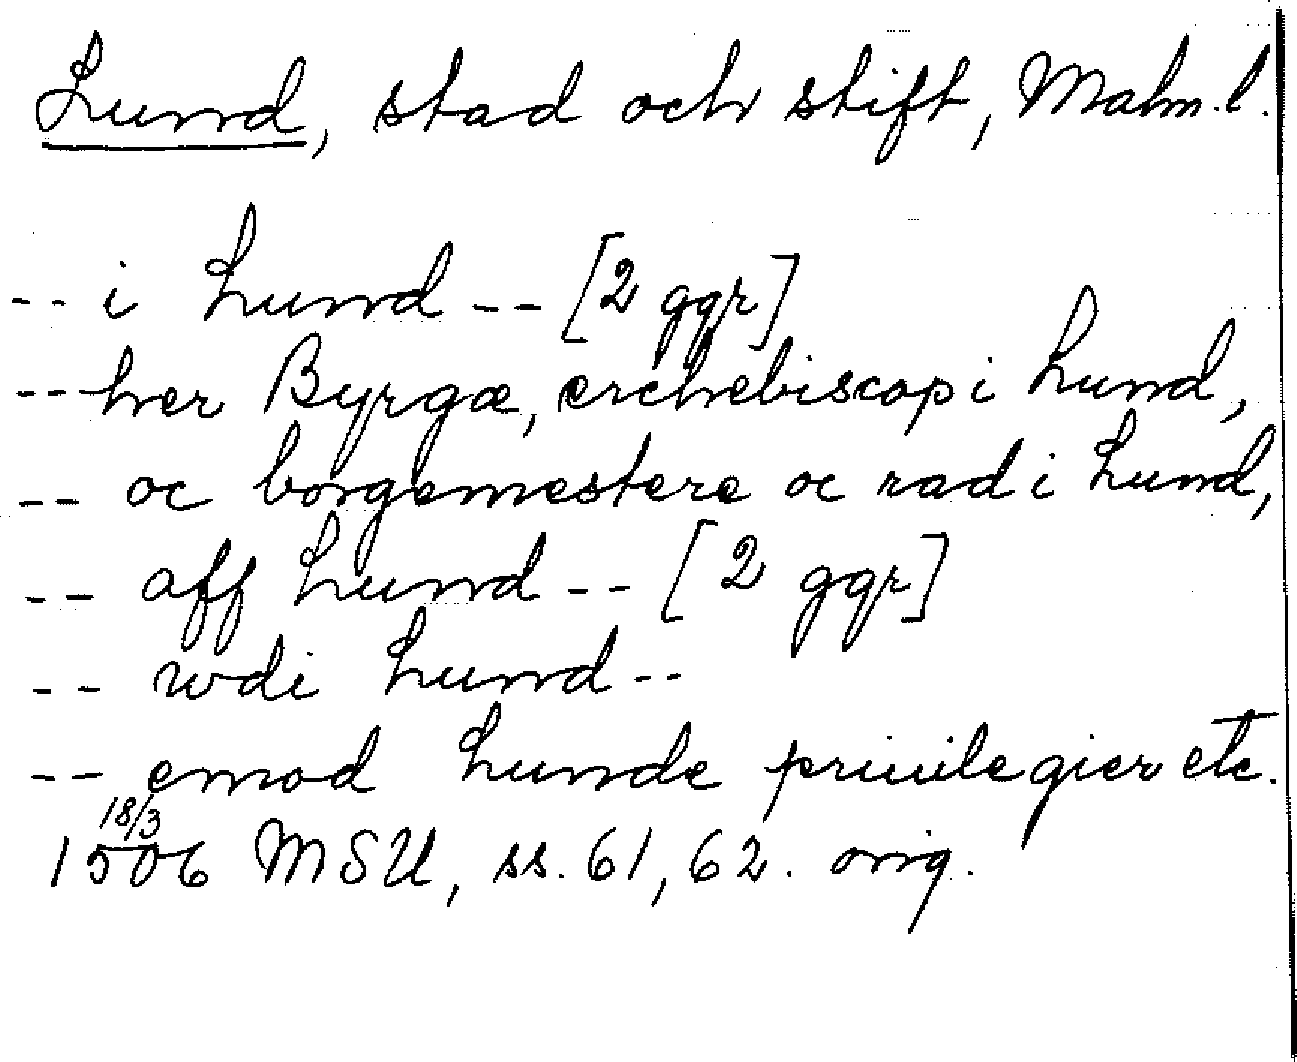 Lund, stad och stift, Malm.l.
-- i Lund -- [2 ggr]
-- her Byrgæ, erchebiscop i Lund,
-- oc borgemestere oc rad i Lund,
-- aff Lund -- [2 ggr]
-- wdi Lund --
-- emod Lunde priuilegier etc.
18/3
1506 MSU, ss. 61, 62. orig.